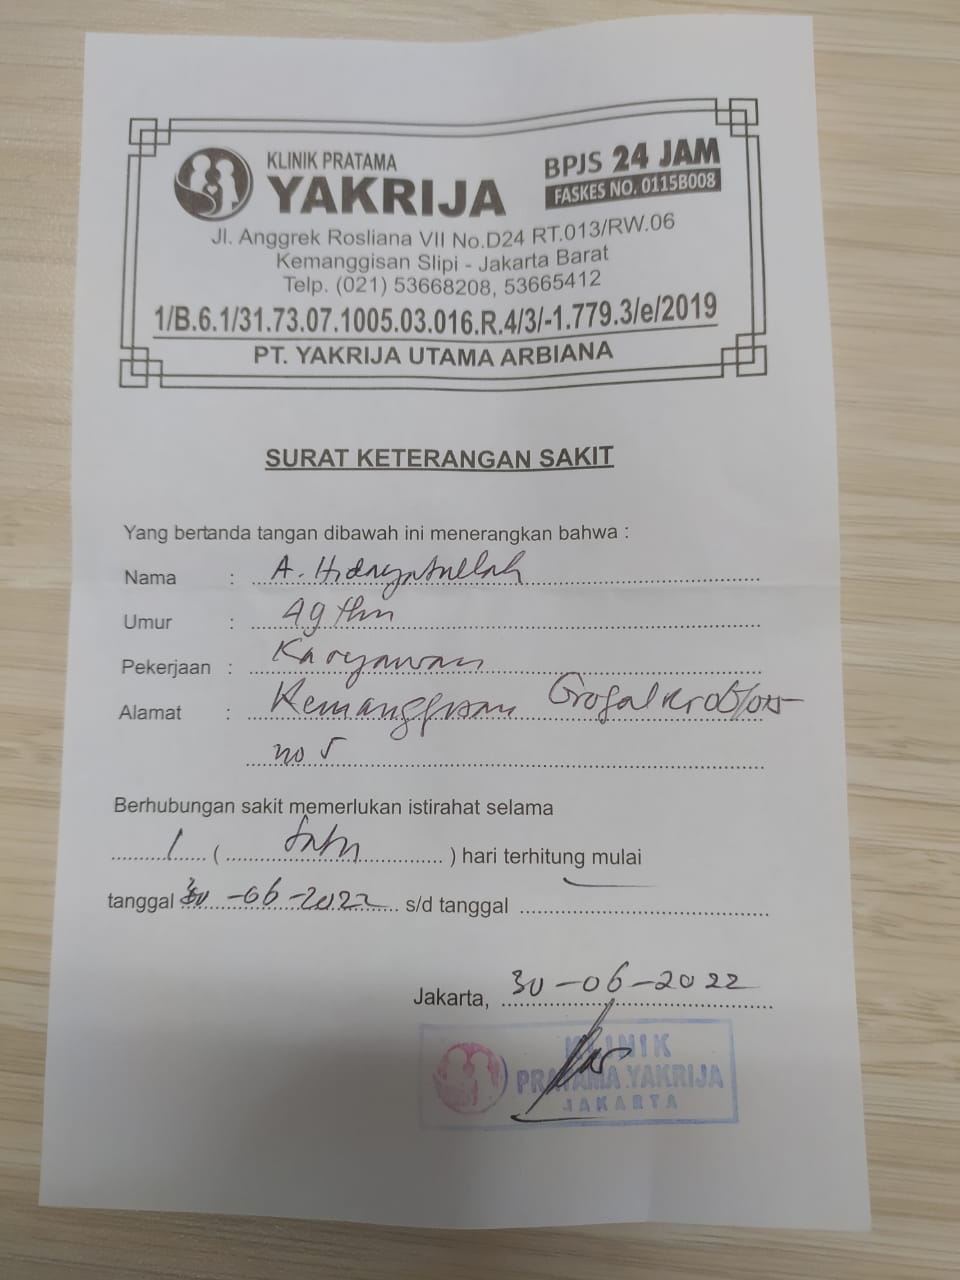 KLINIK PRATAMA
YAKRIJA
BPJS 24 JAM
FASKES NO. 0115B008
Jl. Anggrek Rosliana VII No.D24 RT.013/RW.06
Kemanggisan Slipi - Jakarta Barat
Telp. (021) 53668208, 53665412
1/B.6.1/31.73.07.1005.03.016.R.4/3/-1.779.3/e/2019
PT. YAKRIJA UTAMA ARBIANA
SURAT KETERANGAN SAKIT
Yang bertanda tangan dibawah ini menerangkan bahwa :
Nama : A. Hidayatullah
Umur : 49 thn
Pekerjaan : Karyawan
Alamat : Kemanggisan
no 5
Berhubungan sakit memerlukan istirahat selama
1 ( satu ) hari terhitung mulai
tanggal 30-06-2022 s/d tanggal
Jakarta, 30-06-2022
KLINIK
PRATAMA YAKRIJA
JAKARTA